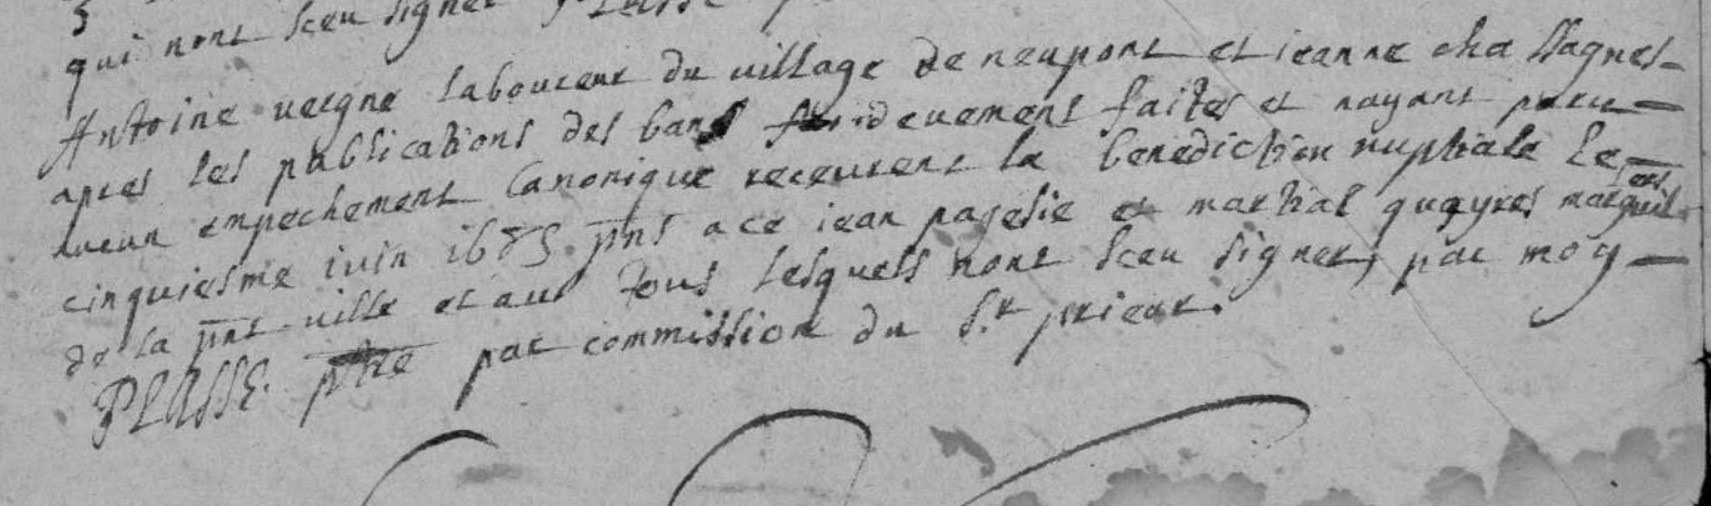 qui nont sceu signer
Antoine vergne laboureur du village de neupont et ieanne chassagnes
apres les publications des bans deuement faites et nayant paru
aucun empechement Canonique receurent la benediction nuptiale le
cinquiesme iuin 1685 pnts a ce iean pagesie et martial queyres marguil
ers
de la pnt ville et au tous lesquels nont sceu signer, par moy
PLASSE. ptre par commission du Sr prieur.